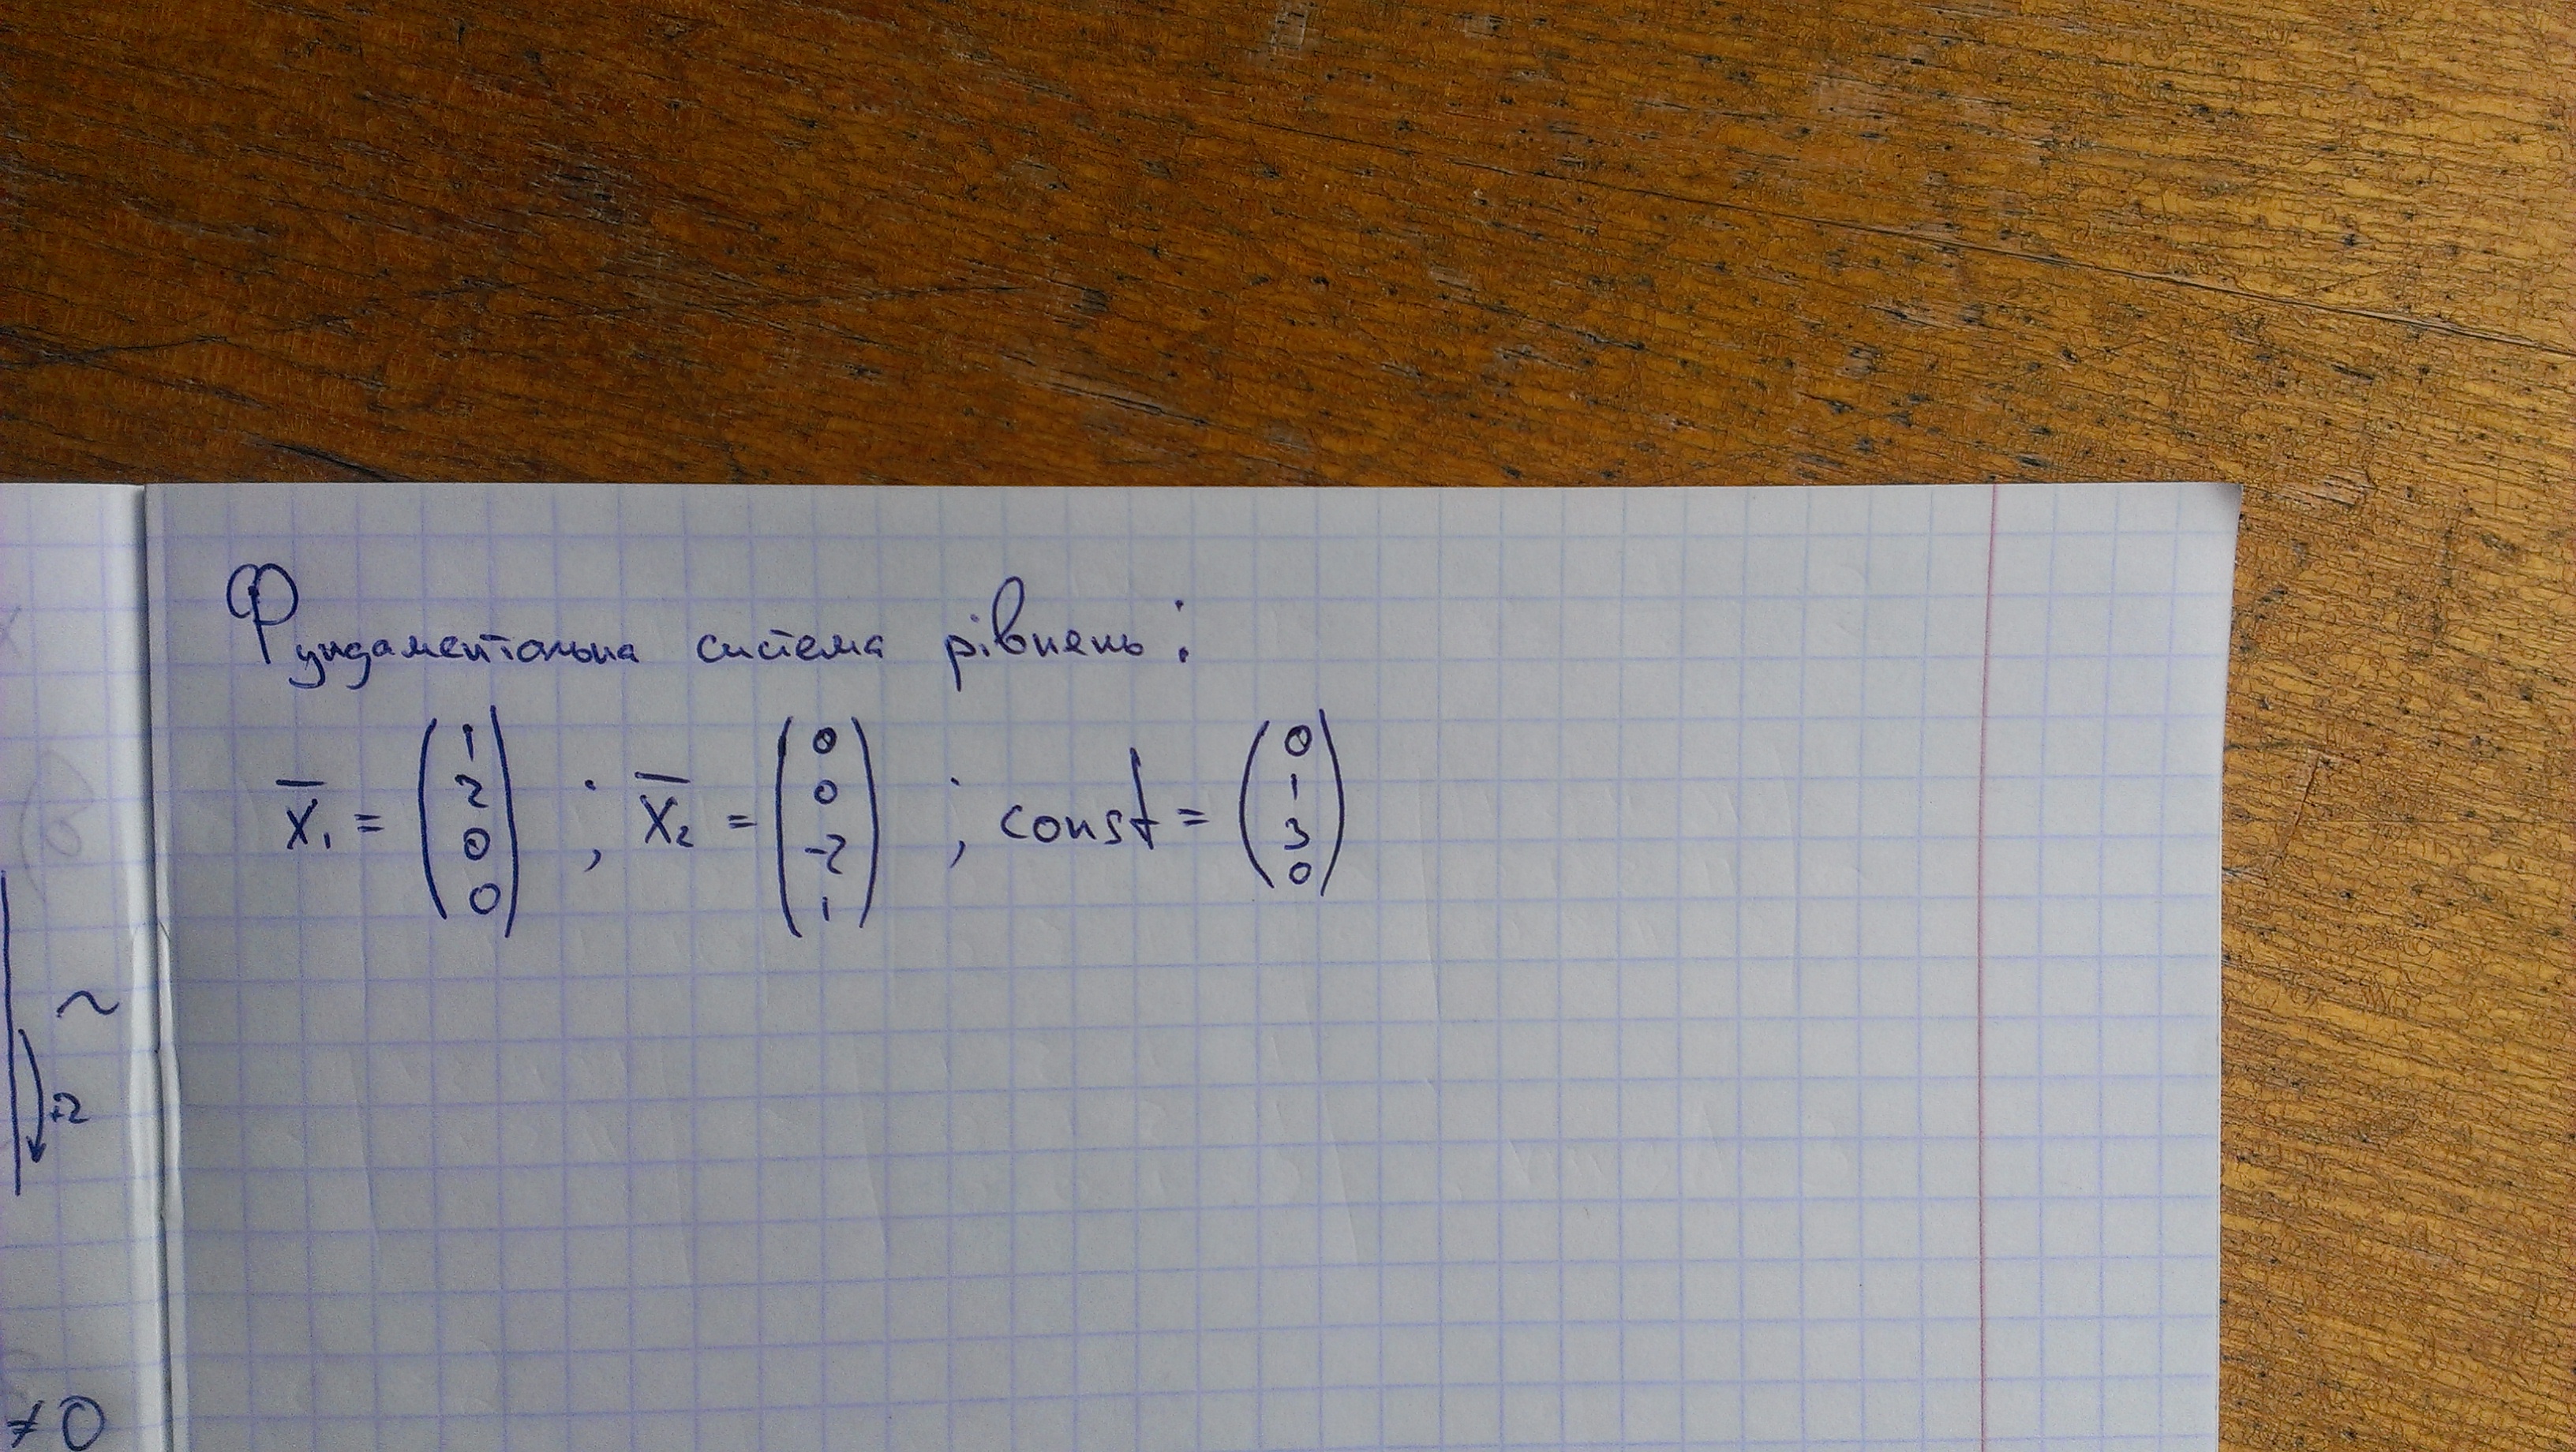 Фундаментальна система рівнень:
x̄₁ = (1 2 0 0) ; x̄₂ = (0 0 -2 1) ; const = (0 1 3 0)
~
+2
≠ 0